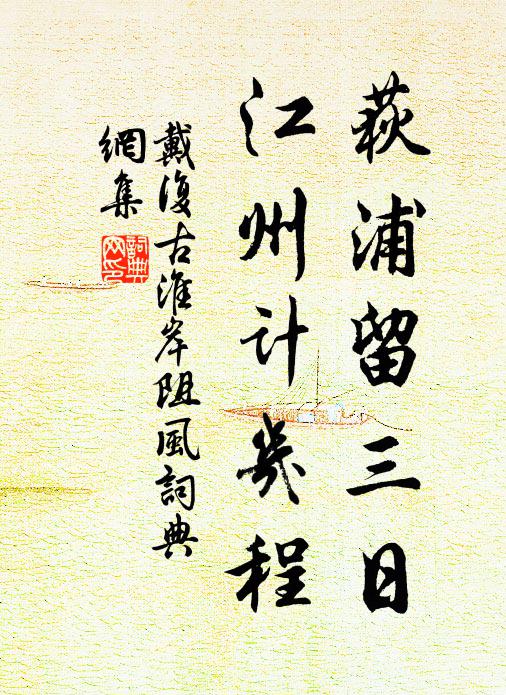 荻浦留三日
江州计几程
戴復古淮岸阻風詞典
網集
詞典
网印